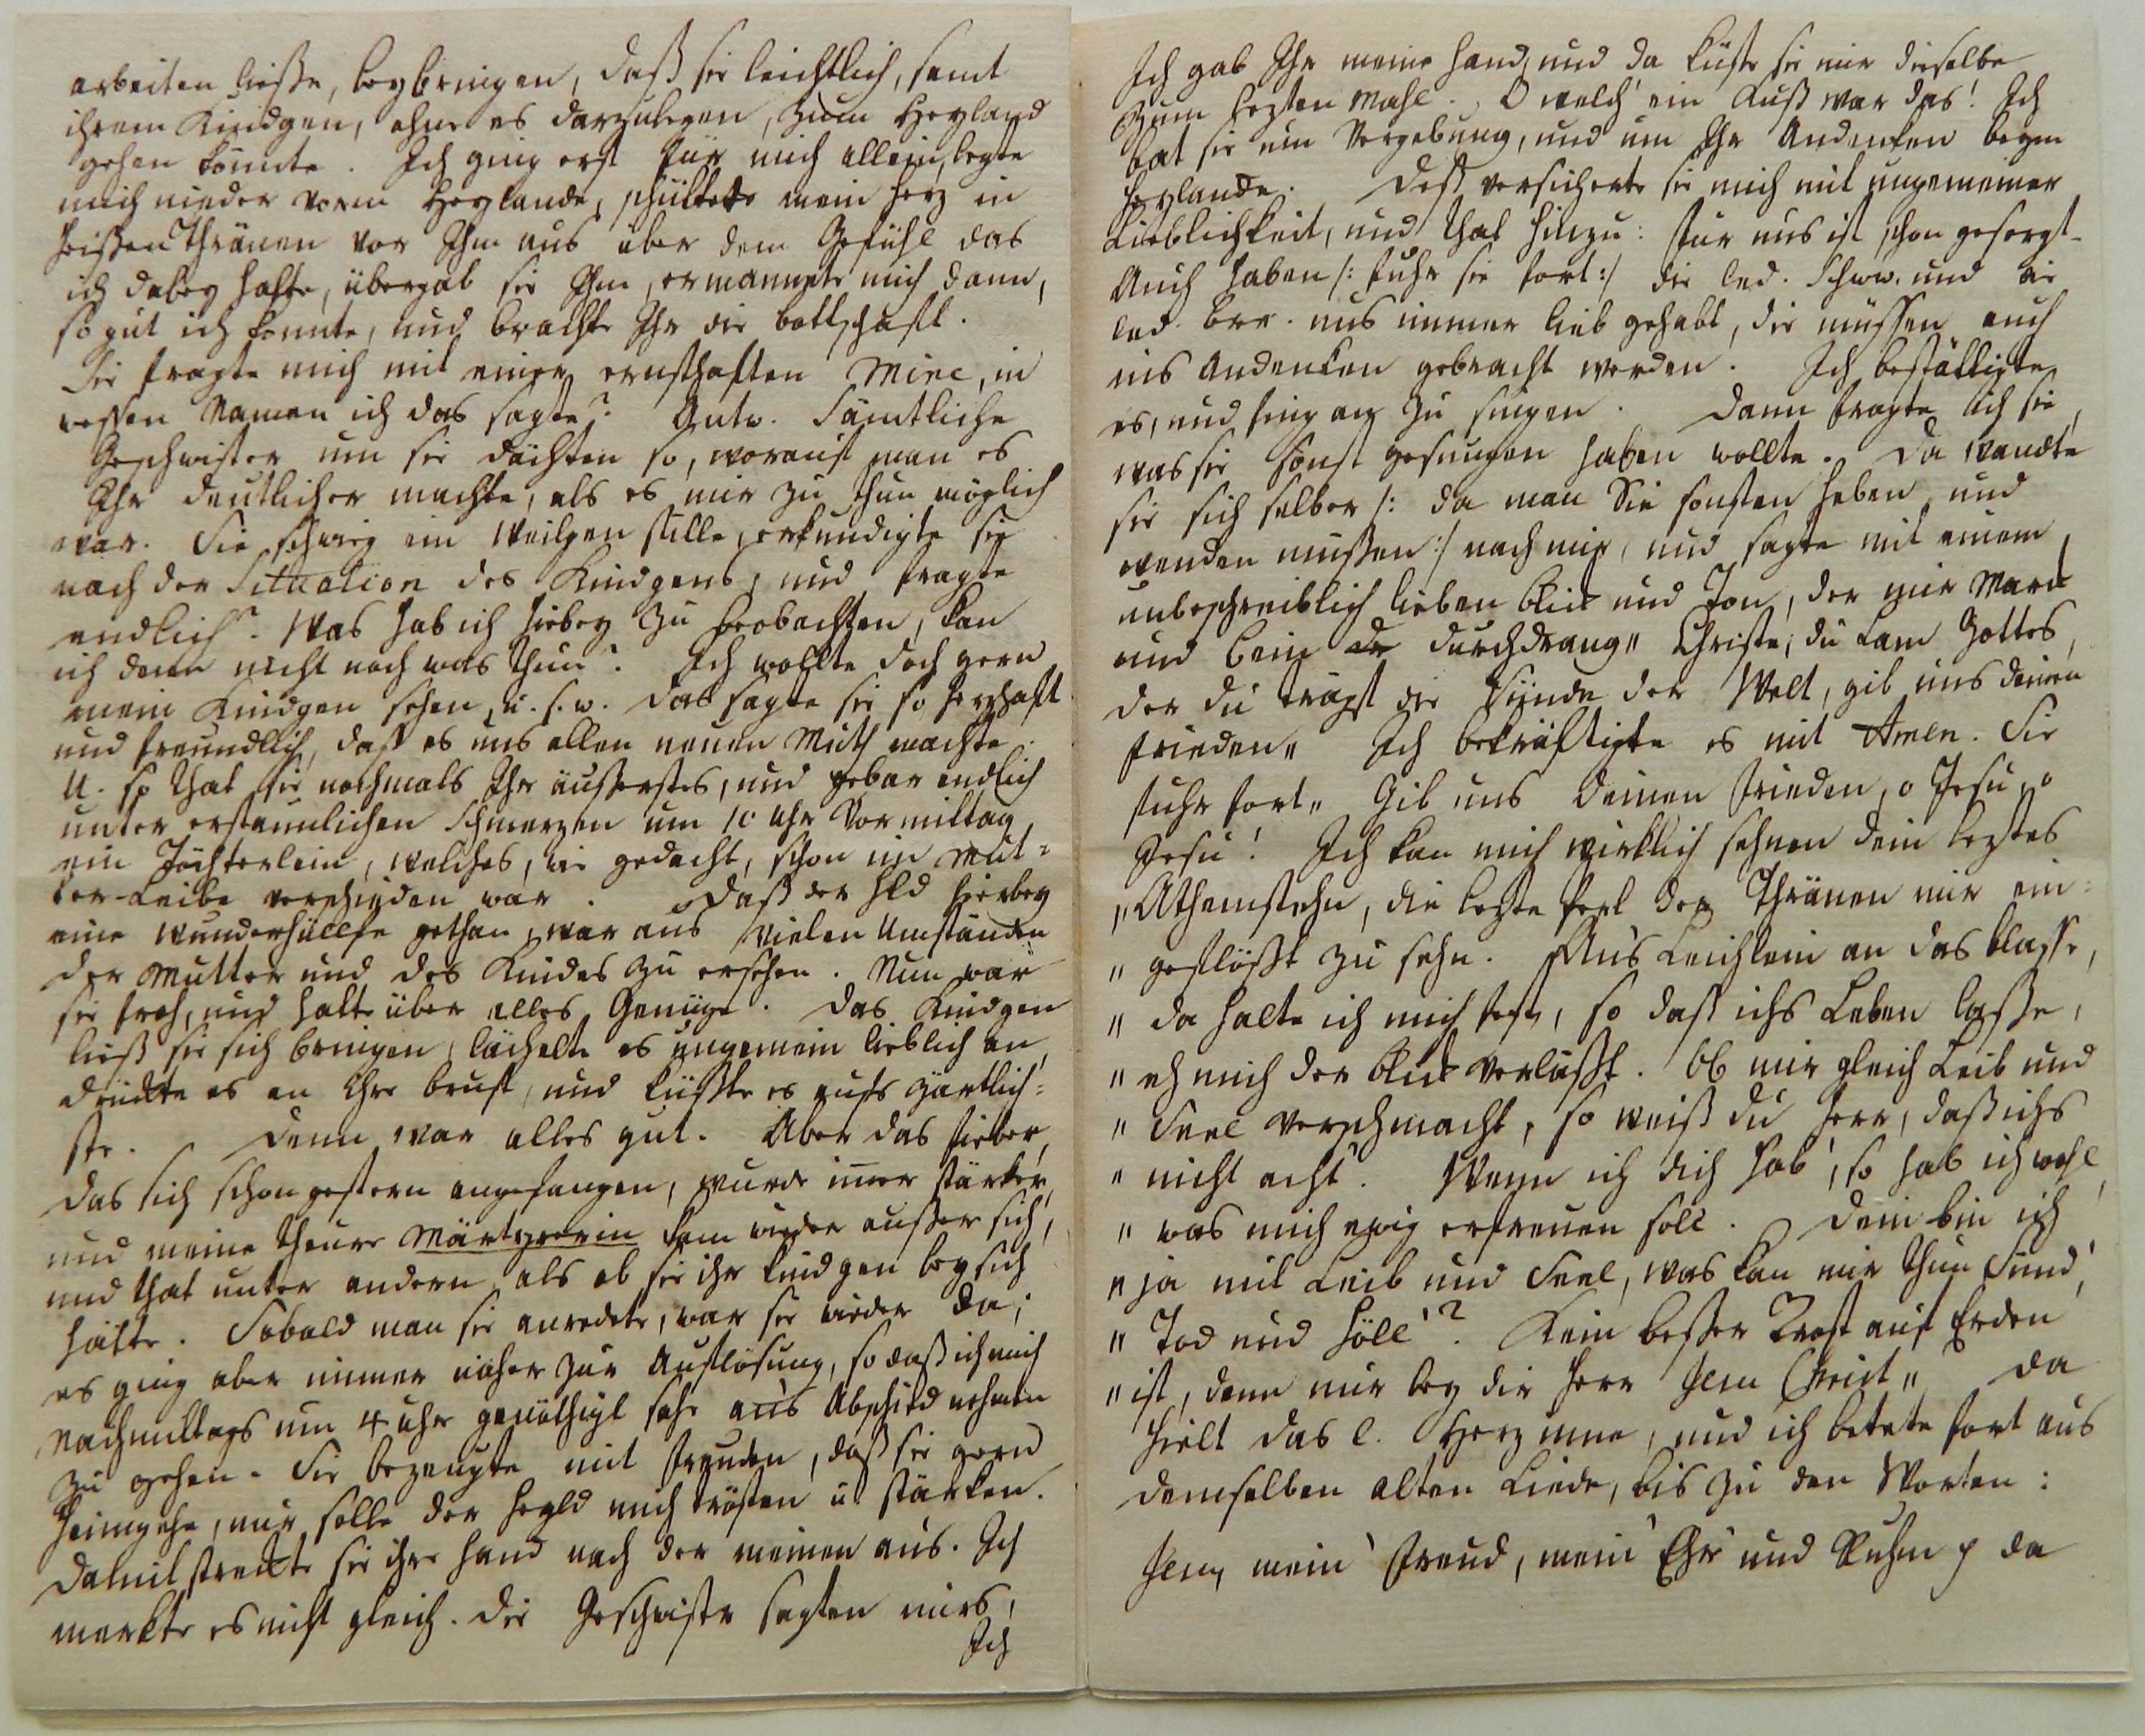 arbeiten ließe, beybringen, daß sie leichtlich, samt
ihrem Kindgen, ohne es darzulegen, zum Heyland
gehen könnte. Ich ging erst für mich allein, legte
mich nieder vorm Heylande, schüttete mein Herz in
heißen Thränen vor Ihm aus über dem Gefühl das
ich dabey hatte, übergab sie Ihm, ermannete mich dann,
so gut ich konnte, und brachte Ihr die bottschaft.
Sie fragte mich mit einer ernsthaften Mine, in
wessen Namen ich das sagte? Antw. Sämtliche
Geschwister um sie dächten so, worauf man es
Ihr deutlicher machte, als es mir zu thun möglich
war. Sie schwieg ein Weilgen stille, erkundigte sich
nach der Situation des Kindgens, und fragte
endlich: Was hab ich hiebey zu beobachten, kan
ich denn nicht noch was thun? Ich wollte doch gern
mein Kindgen sehen, u. s. w. das sagte sie so herzhaft
und freundlich, daß es uns allen neuen Muth machte.
U. so that sie nochmals Ihr äußerstes, und gebar endlich
unter erstaunlichen Schmerzen um 10 Uhr Vormittag
ein Töchterlein, welches, wie gedacht, schon im Mut=
ter-Leibe verschieden war. Daß der Hld hierbey
eine Wunderhülfe gethan, war aus vielen Umständen
der Mutter und des Kindes zu ersehen. Nun war
sie froh, und hatte über alles Genüge. Das Kindgen
ließ sie sich bringen, lächelte es ungemein lieblich an,
drückte es an Ihre brust, und küßte es aufs zärtlich=
ste. Denn war alles gut. Aber das Fieber,
das sich schon gestern angefangen, wurde imer stärker,
und meine theure Märtyrerin kam wieder außer sich,
und that unter andern, als ob sie ihr Kindgen bey sich
hätte. Sobald man sie anredete, war sie wieder da;
es ging aber immer näher zur Auflösung, so daß ich mich
Nachmittags um 4 Uhr genöthigt sahe ans Abschied nehmen
zu gehen. Sie bezeugte mit Freuden, daß sie gern
heimgehe, nur solle der Heyld mich trösten u. stärken.
Damit streckte sie ihre Hand nach der meinen aus. Ich
merkte es nicht gleich. Die Geschwister sagten mirs,
Ich
Ich gab Ihr meine Hand, und da küßte sie mir dieselbe
Zum lezten Mahl. O welch' ein Kuß war das! Ich
bat sie um Vergebung, und um Ihr Andenken beym
Heylande. Deß versicherte sie mich mit ungemeiner
Lieblichkeit, und that hinzu: für uns ist schon gesorgt.
Auch haben /: fuhr sie fort :/ die led. Schw. und die
led. Brr. uns immer lieb gehabt, die müssen auch
ins Andenken gebracht werden. Ich bestättigte
es, und fing an zu singen. Dann fragte ich sie,
was sie sonst gesungen haben wollte. Da wandte
sie sich selber /: da man Sie sonsten heben und
wenden mußen :/ nach mir, und sagte mit einem
unbeschreiblich lieben Blick und Ton, der mir Mark
und bein durchdrang „ Christe, du Lam Gottes,
der du trägst die Sünde der Welt, gib uns deinen
Frieden „ Ich bekräftigte es mit Amen. Sie
fuhr fort „ Gib uns deinen Frieden, o Jesu, o
Jesu! Ich kan mich wirklich sehnen dein leztes
„ Athemstehn, die lezte Perl der Thränen mir ein=
„ geflößt zu sehn. Ans Leichlein an das blasse,
„ da halte ich mich fest, so daß ichs Leben lasse,
„ eh mich der Blick verläßt. Ob mir gleich Leib und
„ Seel verschmacht, so weiß du Herr, daß ichs
„ nicht acht. Wenn ich dich hab', so hab ich wohl
„ was mich ewig erfreuen soll. Dein bin ich
„ ja mit Leib und Seel, was kan mir thun Sünd',
„ Tod und Höll'? Kein beßer Trost auf Erden
„ ist, denn nur bey dir Herr Jesu Christ „ Da
hielt das l. Herz inne, und ich betete fort aus
demselben alten Liede, bis zu den Worten:
Jesu, mein' Freud, mein' Ehr' und Ruhm p da